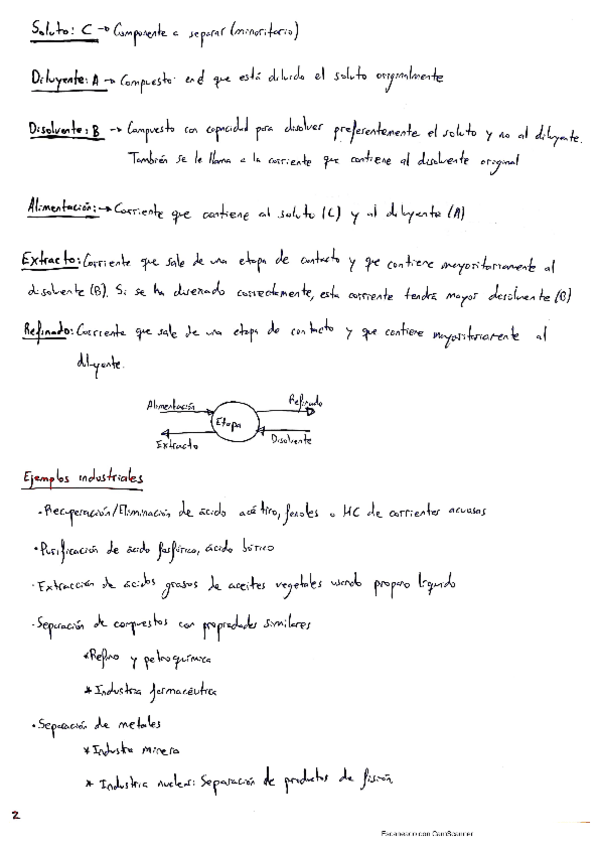 Soluto: C → Componente a separar (minoritario)
Diluyente: A → Compuesto en el que está diluido el soluto originalmente
Disolvente: B → Compuesto con capacidad para disolver preferentemente el soluto y no al diluyente.
También se le llama a la corriente que contiene al disolvente original
Alimentación: → Corriente que contiene al soluto (C) y al diluyente (A)
Extracto: Corriente que sale de una etapa de contacto y que contiene mayoritariamente al
disolvente (B). Si se ha diseñado correctamente, esta corriente tendrá mayor
Refinado: Corriente que sale de una etapa de contacto y que contiene mayoritariamente al
diluyente.
Alimentación
Refinado
Etapa
Extracto
Disolvente
Ejemplos industriales
· Recuperación/Eliminación de ácido acético, fenoles o HC de corrientes acuosas
· Purificación de ácido fosfórico, ácido bórico
· Extracción de ácidos grasos de aceites vegetales usando propano líquido
· Separación de compuestos con propiedades similares
* Refino y petroquímica
* Industria farmacéutica
· Separación de metales
* Industria minera
* Industria nuclear: Separación de productos de fisión
2
Escaneado con CamScanner